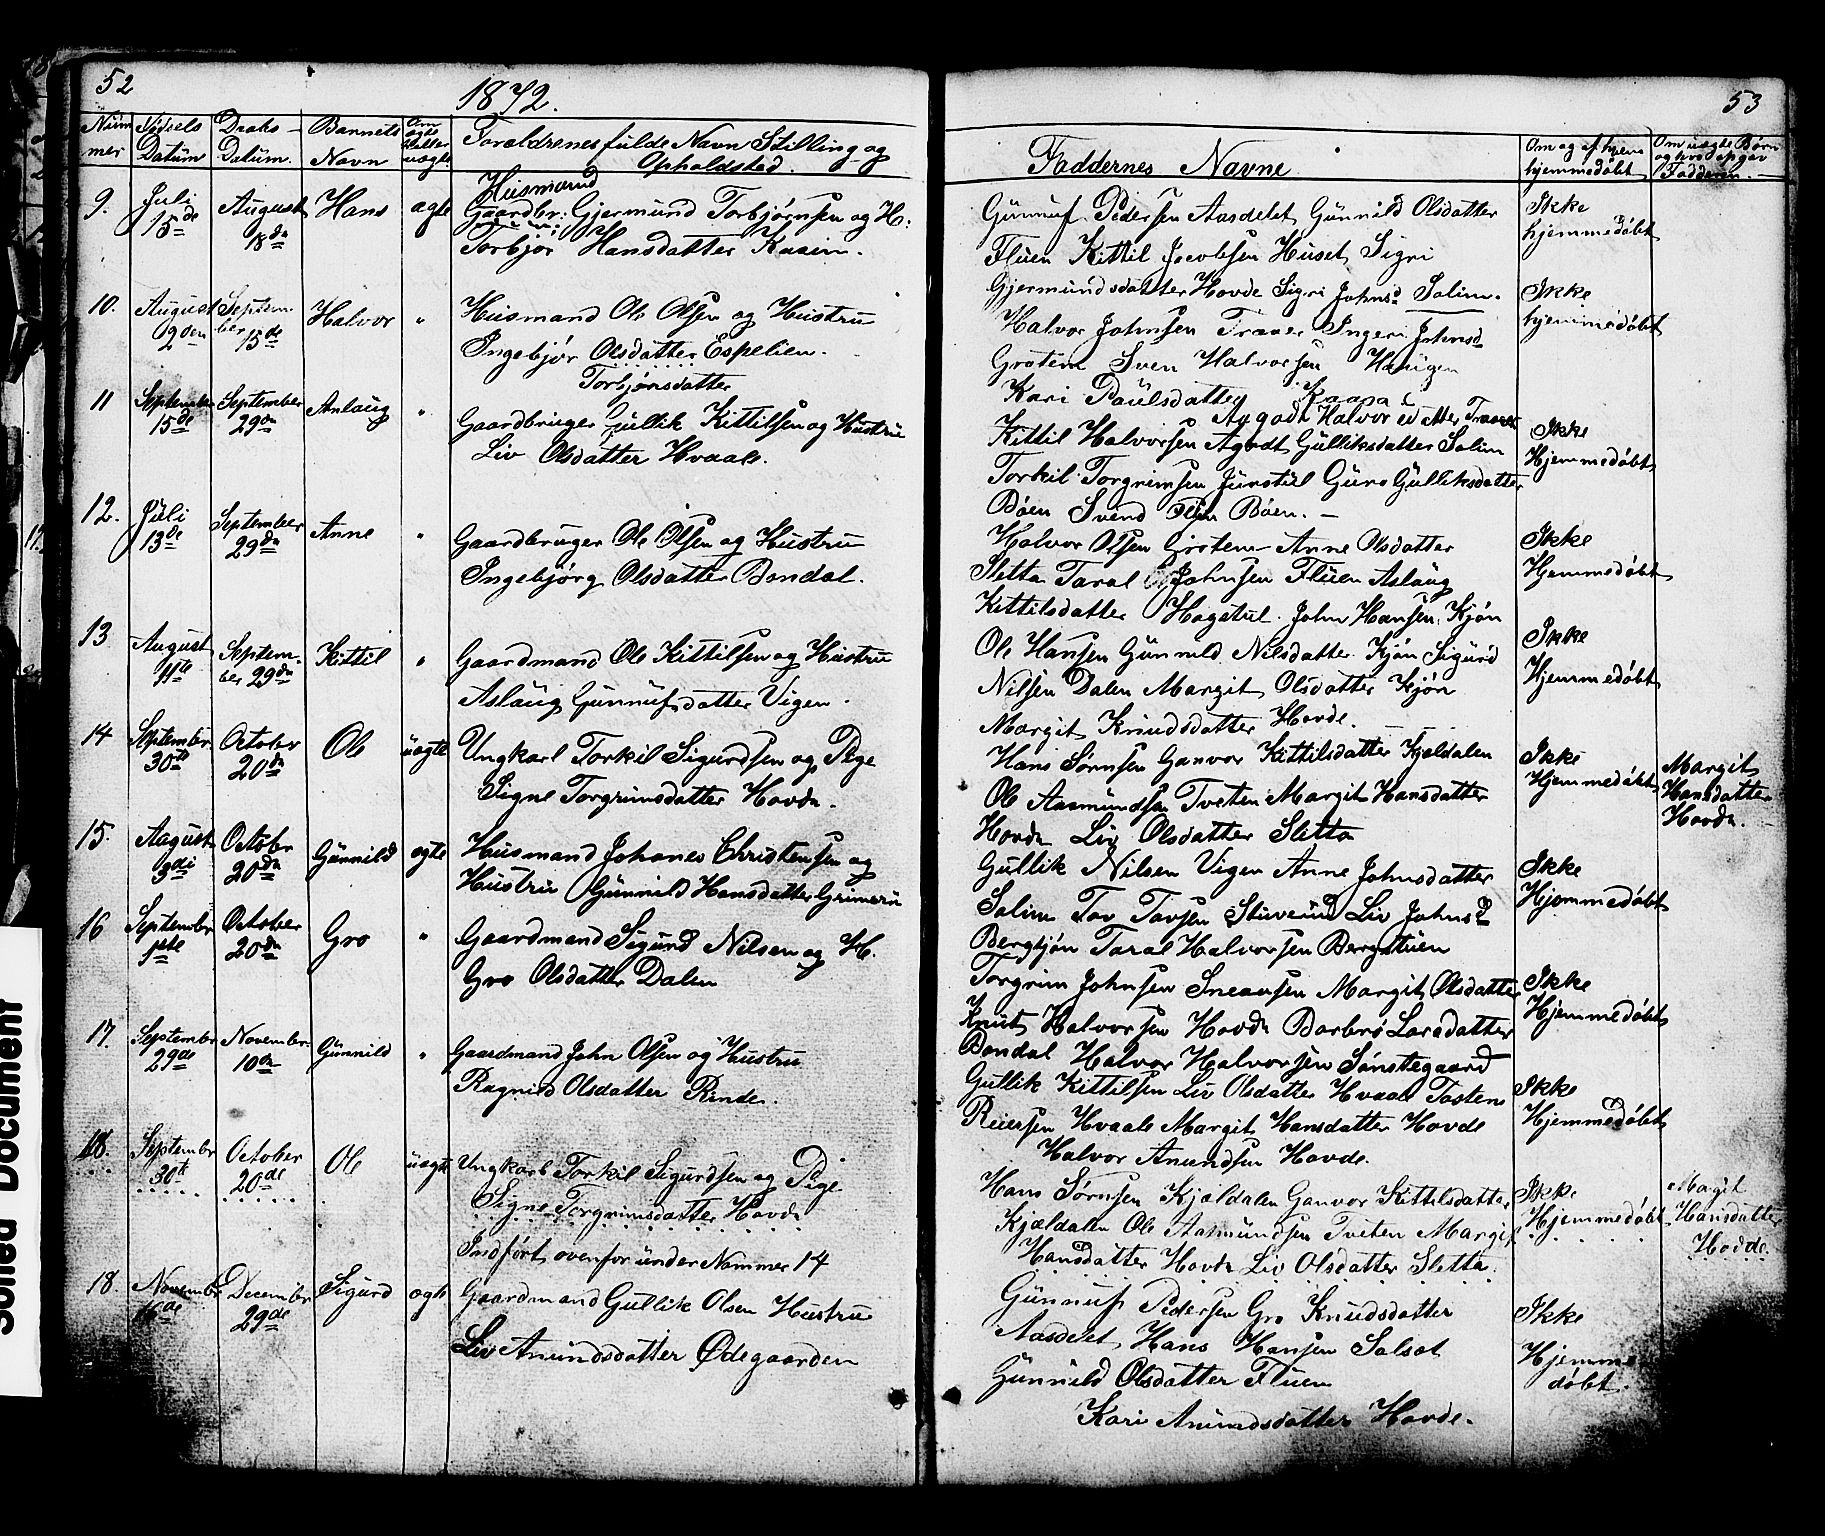 52
1872.
Num
mer
Fødsels
Datum
Daabs-
Datum.
Barnets
Navn
Om
ægte
eller
uægte
Foreldrenes fulde Navn Stilling og
Opholdsted.
9. Juli 15de August 18de Hans ægte Husmand
Gaardbr: Gjermund Torbjørnsen og H:
Torbjør Hansdatter Kaasin.
10. August 2den September 15de Halvor " Husmand Ole Olsen og Hustru
Ingebjør Olsdatter Espelien.
Torbjønsdatter
11 September 15de September 29de Aslaug " Gaardbruger Gullik Kittilsen og Hustru
Liv Olsdatter Hvaale.
12. Juli 13de September 29de Anne " Gaardbruger Ole Olsen og Hustru
Ingebjørg Olsdatter Bondal.
13 August 11te September 29de Kittil " Gaardmand Ole Kittilsen og Hustru
Aslaug Gunnufsdatter Vigen.
14 September 30te October 20de Ole uægte Ungkarl Torkil Sigurdsen og Pige
Signe Torgrimsdatter Hovde.
15. August 3di October 20de Gunnild ægte Husmand Johanes Christensen og
Hustru Gunnild Hansdatter Grimeru
16 September 1ste October 20de Gro " Gaardmand Sigurd Nilsen og H.
Gro Olsdatter Dalen
17. September 29de November 10de Gunnild " Gaardmand John Olsen og Hustru
Ragnild Olsdatter Rinde.
18. September 30te October 20de Ole uægte Ungkarl Torkil Sigurdsen og Pige
Signe Torgrimsdatter Hovde
Indført ovenfor under Nummer 14
18. November 16de December 29de Sigurd ægte Gaardmand Gullik Olsen Hustru
Liv Anundsdatter Ødegaarden
53
Faddernes Navne
Om og af hvem
hjemmedøbt
Om uægte Børn
og hvo opgav
Faderen.
Gunnuf Pedersen Aasdelet Gunnild Olsdatter
Fluen Kittil Jacobsen Huset Sigri
Gjermundsdatter Hovde Sigri Johnsd Solim.
Ikke
hjemmedøbt
Halvor Johnsen Traaer Ingeri Johnsd
Grotem Sven Halvorsen Haugen
Kari Paulsdatter Kaasa
Ikke
hjemmedøbt
Aagodt Halvorsdatter Traaer
Kittil Halvorsen Agodt Gulliksdatter Solim
Torkil Torgrimsen Juvstul Guro Gulliksdatter
Bøen Svend Bøen.
Ikke
Hjemmedøbt
Halvor Olsen Grotem Anne Olsdatter
Sletta Taral Johnsen Fluen Aslaug
Kittilsdatter Hagatul. John Hansen Kjøn
Ikke
Hjemmedøbt
Ole Hansen Gunnild Nilsdatter Kjøn Sigurd
Nilsen Dalen Margit Olsdatter Kjøn
Margit Knudsdatter Hovde.
Ikke
Hjemmedøbt
Hans Sørnsen Ganvor Kittilsdatter Kjeldalen
Ole Aasmundsen Tveten Margit Hansdatter
Hovde Liv Olsdatter Sletta
Ikke
Hjemmedøbt
Margit
Hansdatter
Hovde.
Gullik Nilsen Vigen Anne Johnsdatter
Solim Tov Tovsen Liv Johnsd
Bergkjøn Taral Halvorsen Bergstuen
Ikke
Hjemmedøbt
Torgrim Johnsen Margit Olsdatter
Knut Halvorsen Hovde Barbro Larsdatter
Bondal Halvor Halvorsen Sønstegaard
Ikke
Hjemmedøbt
Gullik Kittilsen Liv Olsdatter Hvaale Tosten
Reiersen Hvaale Margit Hansdatter Hovde
Halvor Anundsen Hovde.
Ikke
Hjemmedøbt
Hans Sørnsen Kjældalen Ganvor Kittilsdatter
Kjældalen Ole Aasmundsen Tveten Margit
Hansdatter Hovde Liv Olsdatter Sletta.
Ikke
Hjemmedøbt
Margit
Hansdatter
Hovde.
Gunnuf Pedersen Gro Knudsdatter
Aasdelet Hans Hansen Solsot
Gunnild Olsdatter Fluen
Kari Anundsdatter Hovde.
Ikke
Hjemme
døbt.
Document